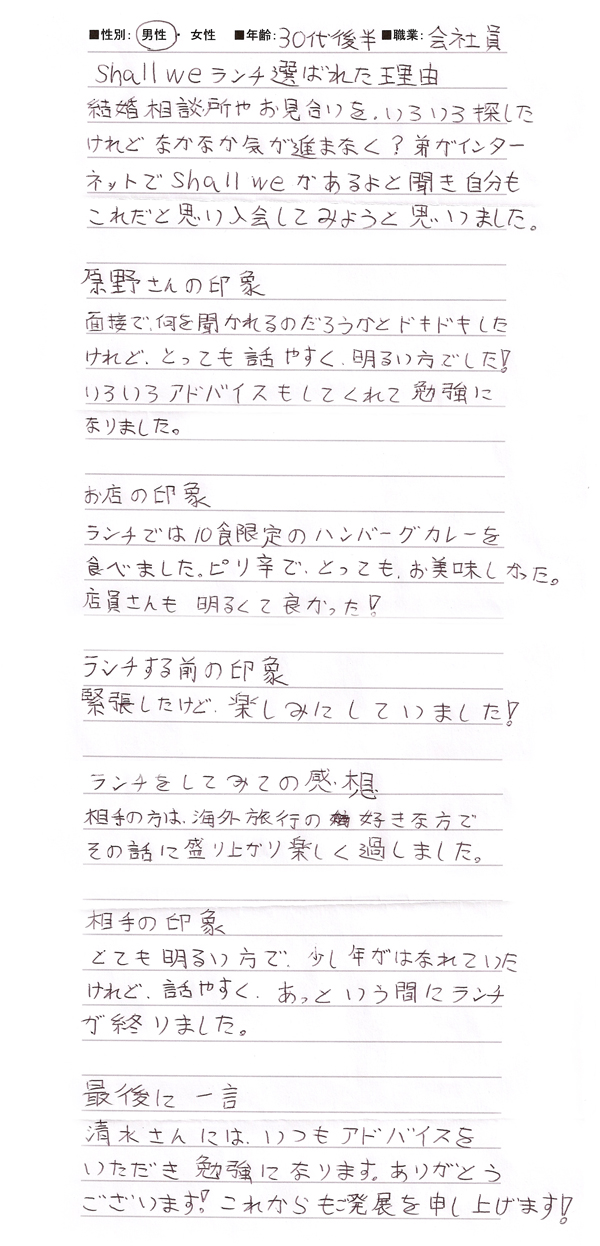 ■性別: 男性・女性 ■年齢: 30代後半 ■職業: 会社員
Shall we ランチ選ばれた理由
結婚相談所やお見合いを、いろいろ探した
けれどなかなか気が進まなく?弟がインター
ネットでShall weがあるよと聞き自分も
これだと思い入会してみようと思いつました。
原野さんの印象
面接で、何を聞かれるのだろうかとドキドキした
けれど、とっても話やすく、明るい方でした!
いろいろアドバイスもしてくれて勉強に
なりました。
お店の印象
ランチでは10食限定のハンバーグカレーを
食べました。ピリ辛で、とっても、お美味しかった。
店員さんも 明るくて良かった!
ランチする前の印象
緊張したけど、楽しみにしていました!
ランチをしてみての感想
相手の方は、海外旅行の好きな方で
その話に盛り上がり楽しく過しました。
相手の印象
とても明るい方で、少し年がはなれていた
けれど、話やすく、あっという間にランチ
が終りました。
最後に一言
清水さんには、いつもアドバイスを
いただき勉強になります。ありがとう
ございます!これからもご発展を申し上げます!